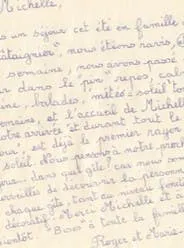 Michelle,
un séjour cet été en famille
taignier", nous étions ravis,
semaine, nous avons passé
dans le "pin" repos, cal
ine, balades, météo-soleil to
emaine, et l'accueil de Michelle
otre arrivée et durant tout le
our, est déjà le premier rayon
soleil. Nous pensons à notre proch
dans quel gîte? car nous som
erveillés de découvrir la personn
chaque gîte, tant au niveau fonct
décoratif. Merci Michelle et à
ientôt. Bises à toute la famille
Roger et Marie-